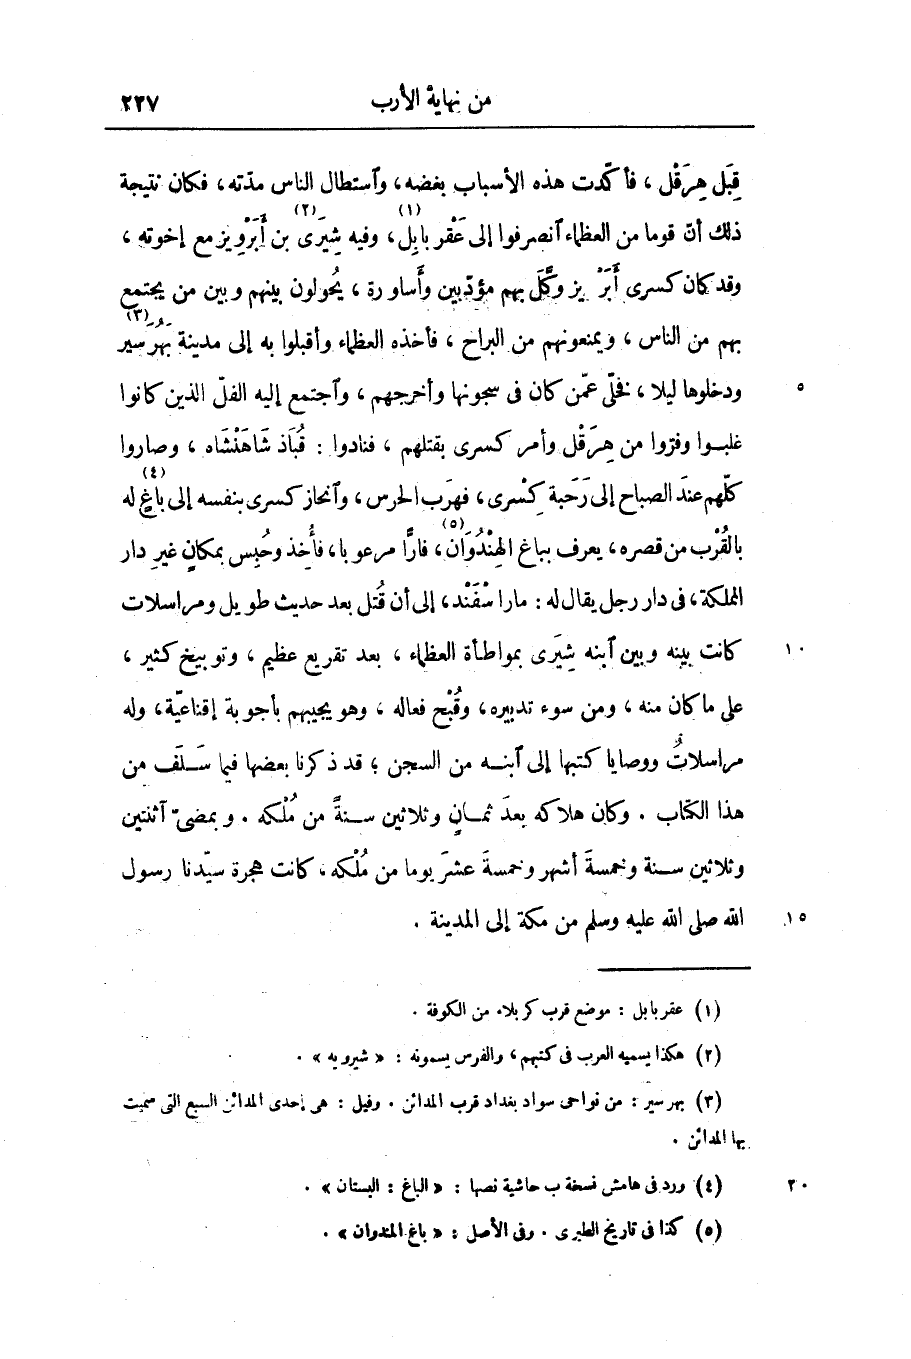 من نهاية الأرب ٢٢٧
قِبَل هِرَقْل ، فأكّدت هذه الأسباب بغضه، وآستطال الناس مدّته، فكان نتيجة
ذلك أنّ قوما من العظماء آنصرفوا إلى عَقْر بابِل(١)، وفيه شِيَرى(٢) بن أَبَرْوِيز مع إخوته ،
وقد كان كسرى أَبَرْ يز وَكَّلَ بهم مؤدّبين وأَساورة ، يُحولون بينهم وبين من يجتمع
بهم من الناس ، ويمنعونهم من البراح ، فأخذه العظماء وأقبلوا به إلى مدينة بَهُرَسير(٣)
ودخلوها ليلا ، فخلّى عمّن كان فى سجونها وأخرجهم ، وآجتمع إليه الفلّ الذين كانوا ٥
غلبوا وفرّوا من هِرَقْل وأمر كسرى بقتلهم ، فنادوا : قُبَاذ شَاهَنْشَاه ، وصاروا
كلّهم عند الصباح إلى رَحَبة كِسْرى، فهرَب الحرس، وآنحاز كسرى بنفسه إلى باغٍ(٤) له
بالقُرْب من قصره، يعرف بباغ الهِنْدُوَان(٥)، فارًّا مرعوبا، فأُخذ وحُبِس بمكانٍ غيرِ دار
المملكة، فى دار رجل يقال له : مارا سْفَنْد، إلى أن قُتل بعد حديث طويل ومراسلات
كانت بينه وبين آبنه شِيَرى بمواطأة العظماء ، بعد تقريع عظيم ، وتوبيخ كثير ، ١٠
على ما كان منه ، ومن سوء تدبيره، وقُبْح فعاله ، وهو يجيبهم بأجوبة إقناعيّة، وله
مراسلاتٌ ووصايا كتبها إلى آبنه من السجن ؛ قد ذكرنا بعضها فيما سَلَف من
هذا الكتاب . وكان هلاكه بعدَ ثمــانٍ وثلاثين سنةً من مُلْكه . وبمضىّ آثنتين
وثلاثين سنة وخمسةَ أشهر وخمسةَ عشرَ يوما من مُلْكه، كانت هجرة سيّدنا رسول
الله صلى الله عليه وسلم من مكة إلى المدينة . ١٥
(١) عقر بابل : موضع قرب كربلاء من الكوفة .
(٢) هكذا يسميه العرب فى كتبهم ، والفرس يسمونه : « شيرويه » .
(٣) بهرسير : من نواحى سواد بغداد قرب المدائن . وقيل : هى إحدى المدائن السبع التى سميت
بها المدائن .
(٤) ورد فى هامش نسخة ب حاشية نصها : « الباغ : البستان » . ٢٠
(٥) كذا فى تاريخ الطبرى . وفى الأصل : « باغ المندوان » .